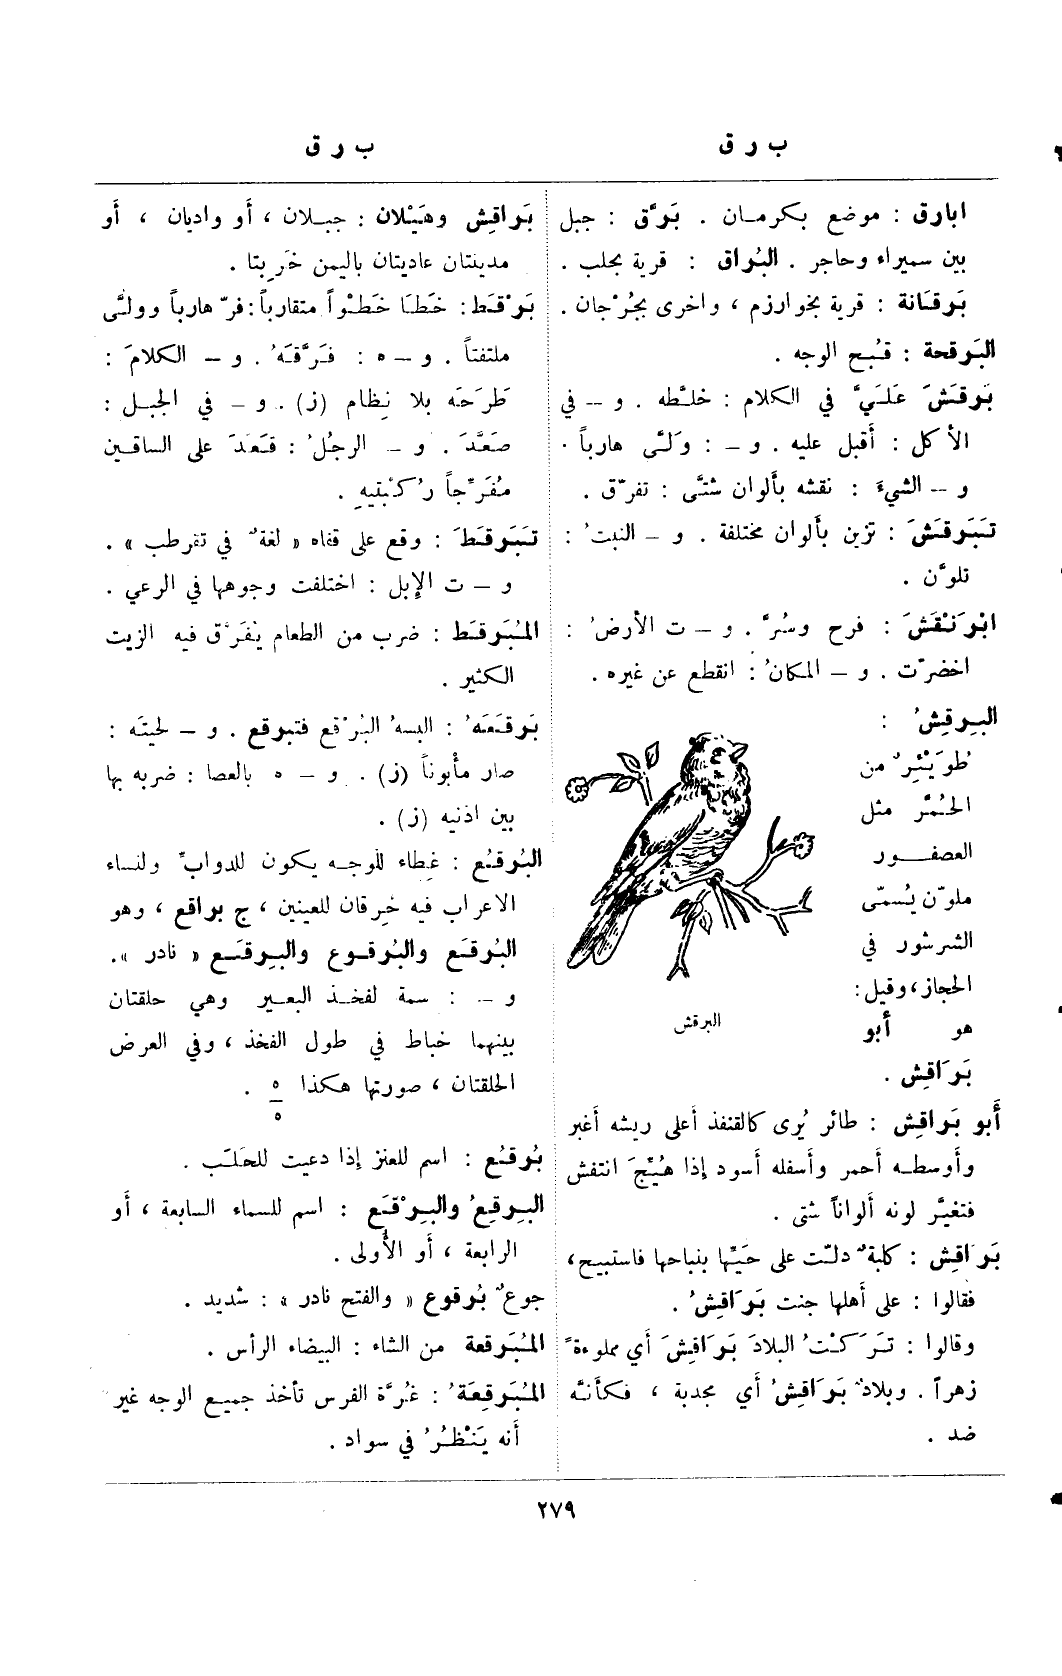 ب ر ق
ابارق : موضع بكرمان . بَرَّق : جبل
بين سميراء وحاجر . البُراق : قرية بحلب .
بَرقانة : قرية بخوارزم ، واخرى بجُرْجان .
البَرقحة : قُبح الوجه .
بَرقَشَ عَلَيَّ في الكلام : خلَّطه . و – في
الأكل : أقبل عليه . و – : وَلَّى هارباً .
و – الشيءَ : نقشه بألوان شتَّى : تفرّق .
تَبَرقَشَ : تزين بألوان مختلفة . و – النبتُ :
تلوَّن .
ابْرَنْقَشَ : فرح وسُرَّ . و – ت الأرضُ :
اخضرّت . و – المكانُ : انقطع عن غيره .
البِرقِشُ :
طُوَيْئِرٌ من
الحُمَّر مثل
العصفور
ملوّن يُسمّى
الشرشور في
الحجاز ، وقيل :
هو أبو
بَرَاقِش .
البرقش
أَبو بَراقِش : طائر يُرى كالقنفذ أَعلى ريشه أَغبر
وأَوسطه أَحمر وأَسفله أَسود إذا هُيِّجَ انتفش
فتغيَّر لونه أَلواناً شتى .
بَرَاقِش : كلبةٌ دلّت على حَيِّها بنباحها فاستبيح ،
فقالوا : على أَهلها جنت بَرَاقِشُ .
وقالوا : تَرَكْتُ البلادَ بَرَاقِشَ أَي مملوءةً
زهراً . وبلادٌ بَرَاقِشُ أَي مجدبة ، فكأنَّه
ضد .
ب ر ق
بَراقِش وهَيْلان : جبلان ، أَو واديان ، أَو
مدينتان عاديتان باليمن خَرِبتا .
بَرْقَط : خَطَا خَطْواً متقارباً : فرّ هارباً وولَّى
ملتفتاً . و – ه : فَرَّقَهُ . و – الكلامَ :
طَرَحَه بلا نِظام (ز) . و – في الجبل :
صَعَّدَ . و – الرجُلُ : قَعَدَ على الساقين
مُفَرِّجاً رُكْبَتيهِ .
تَبَرقَطَ : وقع على قفاه « لغةٌ في تقرطب » .
و – ت الإبل : اختلفت وجوهها في الرعي .
المُبَرقَط : ضرب من الطعام يُفَرَّق فيه الزيت
الكثير .
بَرقَعَهُ : البسه البُرْقع فتبرقع . و – لحيتَه :
صار مأبوناً (ز) . و – ه بالعصا : ضربه بها
بين اذنيه (ز) .
البُرقُع : غِطاء للوجه يكون للدوابّ ولنساء
الاعراب فيه خِرقان للعينين ، ج براقع ، وهو
البُرقَع والبُرقوع والبِرقَع « نادر » .
و – : سمة لفخذ البعير وهي حلقتان
بينهما خباط في طول الفخذ ، وفي العرض
الحلقتان ، صورتها هكذا ه – ه .
بُرقُع : اسم للعنز إذا دعيت للحَلَب .
البِرقِعُ والبِرْقَع : اسم للسماء السابعة ، أَو
الرابعة ، أَو الأُولى .
جوعٌ بُرقوع « والفتح نادر » : شديد .
المُبَرقعة من الشاء : البيضاء الرأس .
المُبَرقِعَةُ : غُرَّة الفرس تأخذ جميع الوجه غير
أَنه يَنْظُرُ في سواد .
٢٧٩